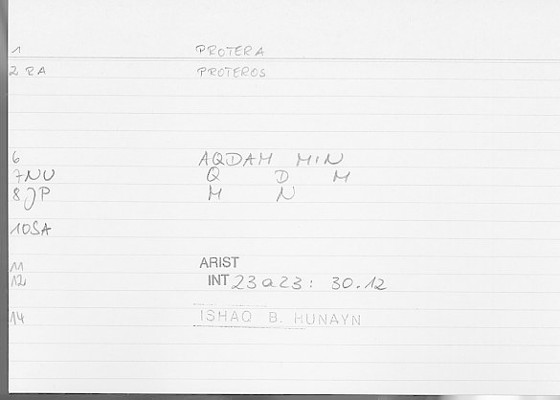 1 PROTERA
2 RA PROTEROS
6 AQDAM MIN
7 NU Q D M
8 JP M N
10 SA
11 ARIST
12 INT 23a23: 30.12
14 ISHAQ B. HUNAYN